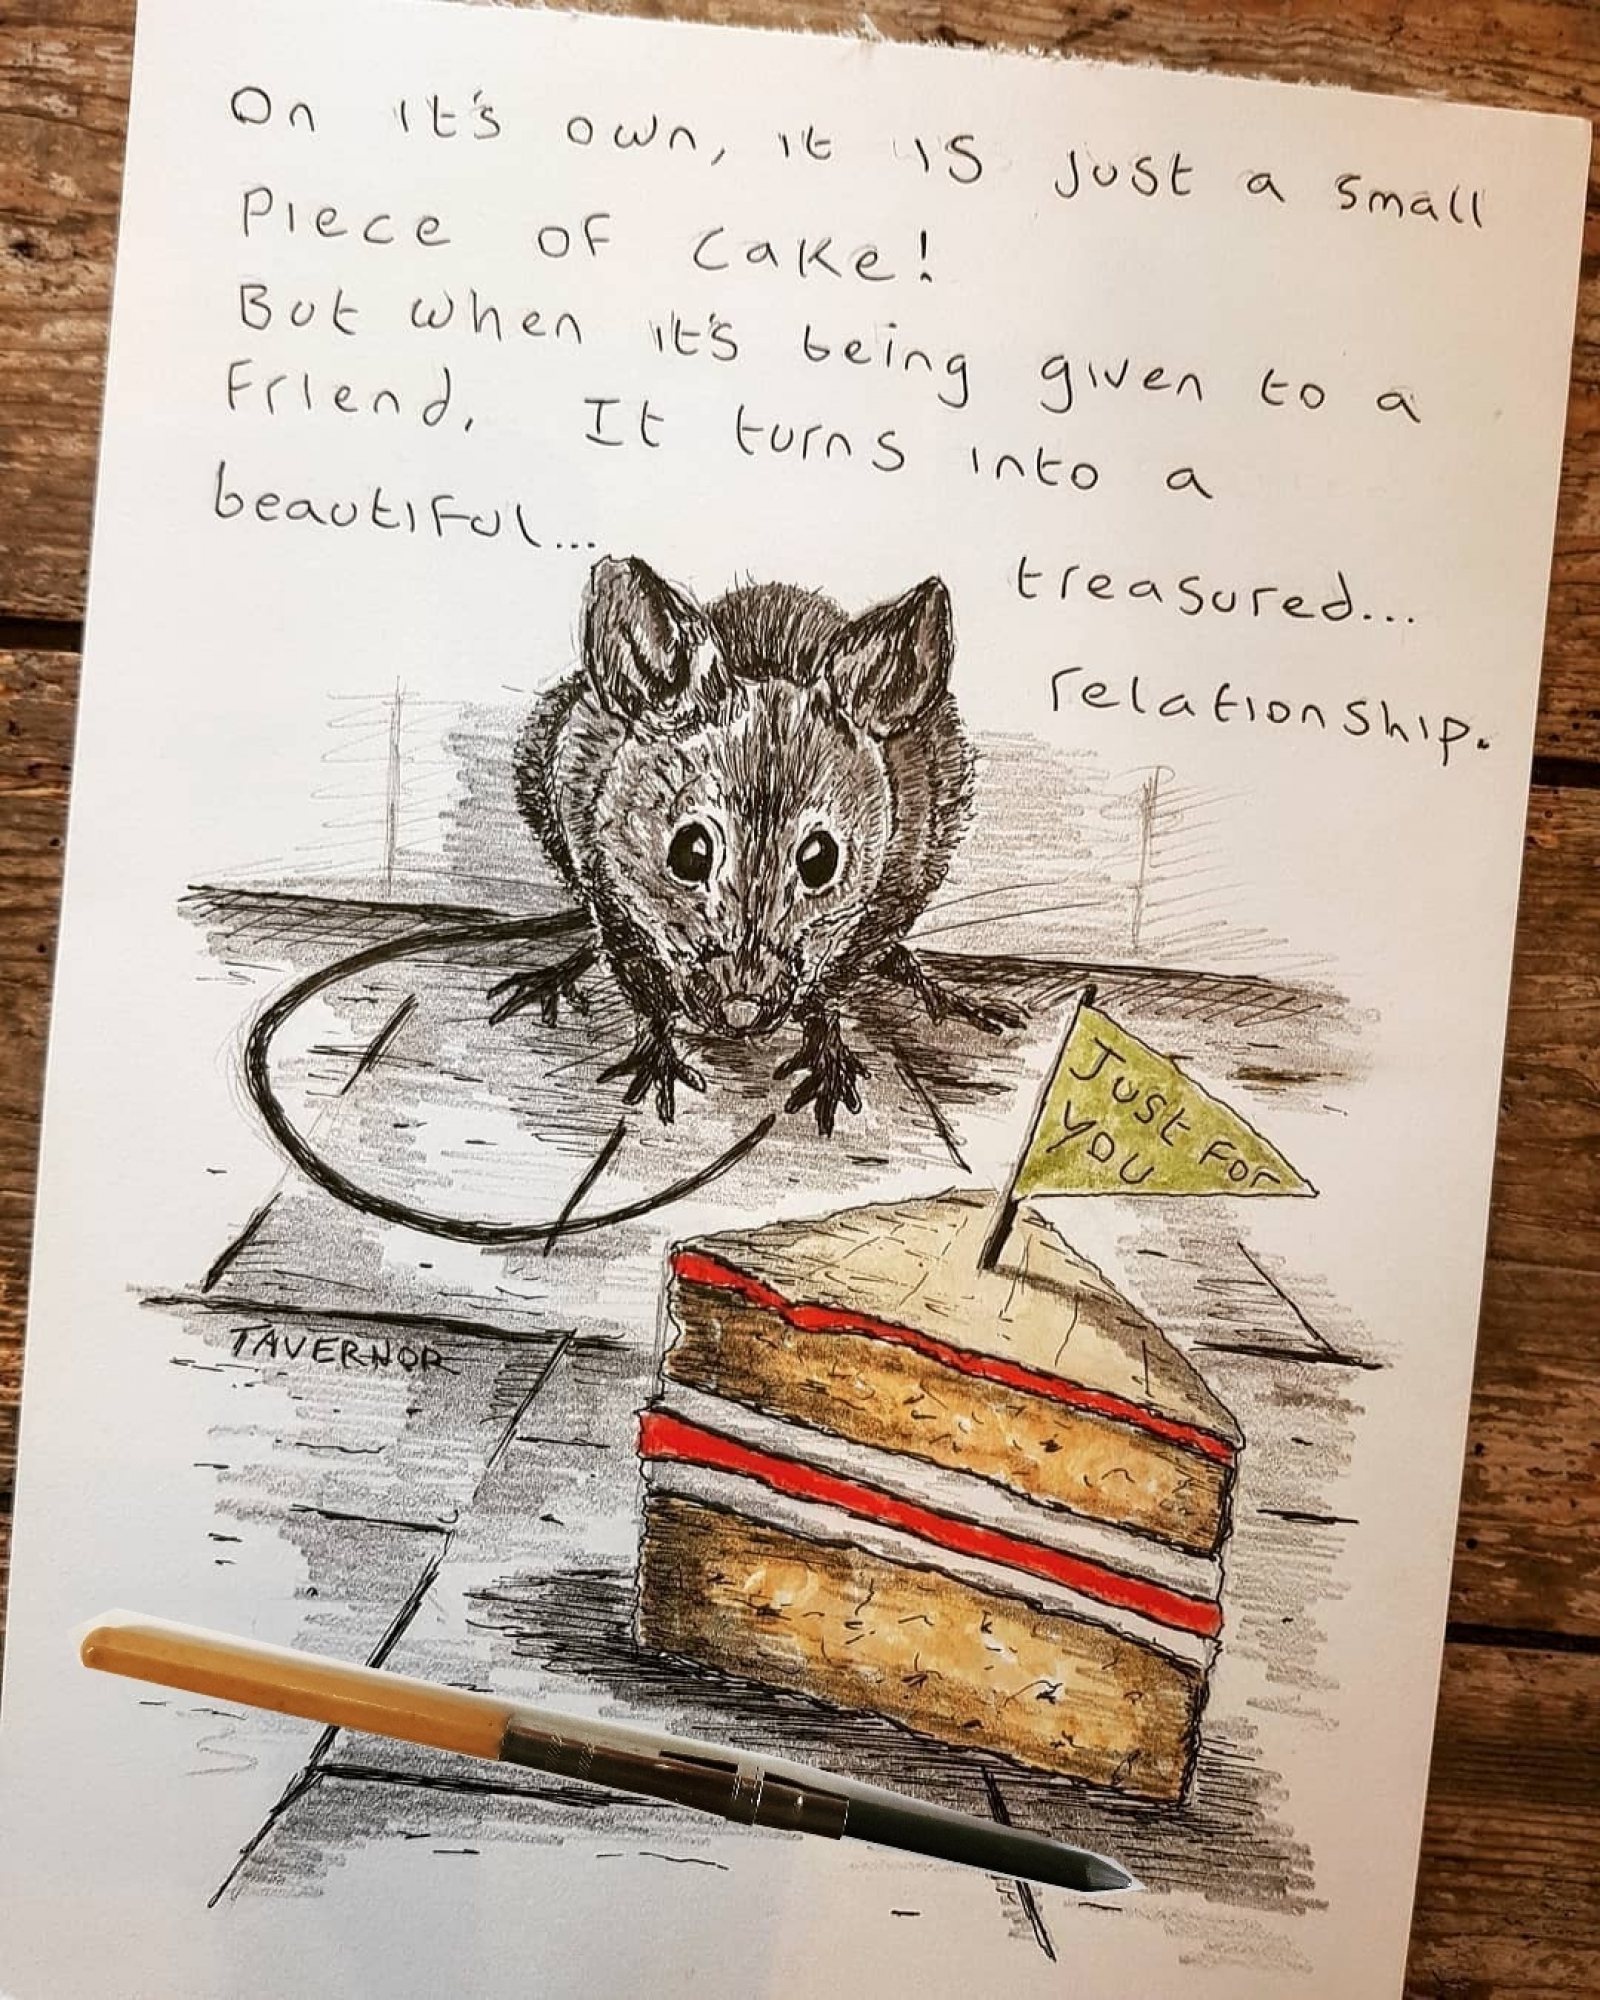 On it's own, it is just a small
Piece of cake!
But when it's being given to a
Friend, It turns into a
beautiful...
treasured...
relationship.
Just For
you
TAVERNOR